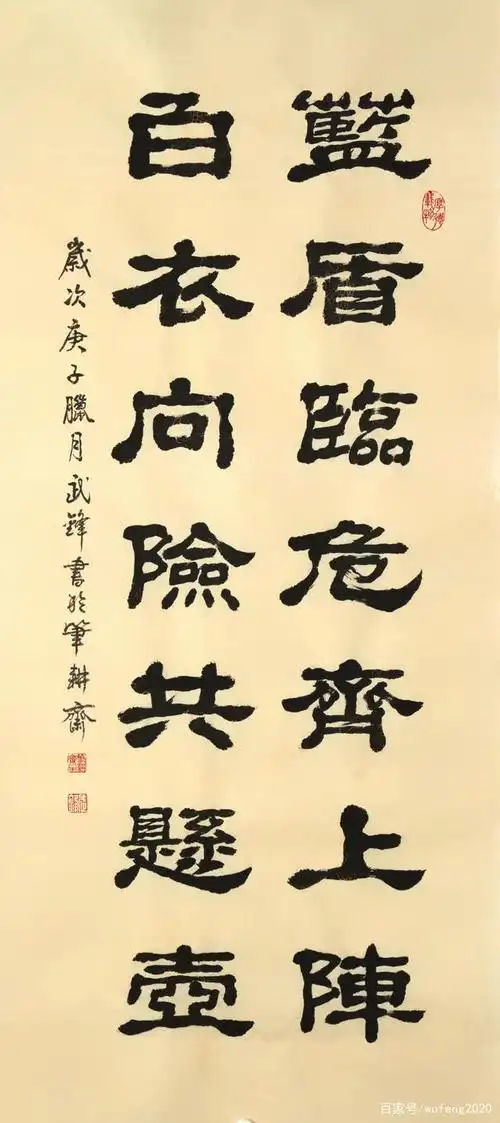 藍盾臨危齊上陣
白衣向險共懸壺
歲次庚子臘月武鋒書於筆耕齋
百家号/wufeng2020